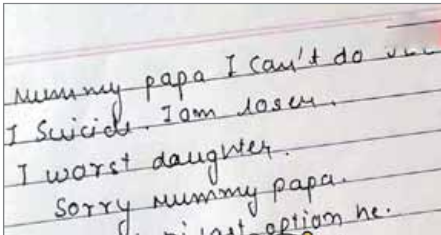 Mummy papa I can't do
I Suicide. I am loser.
I worst daughter.
Sorry mummy papa.
last option he.